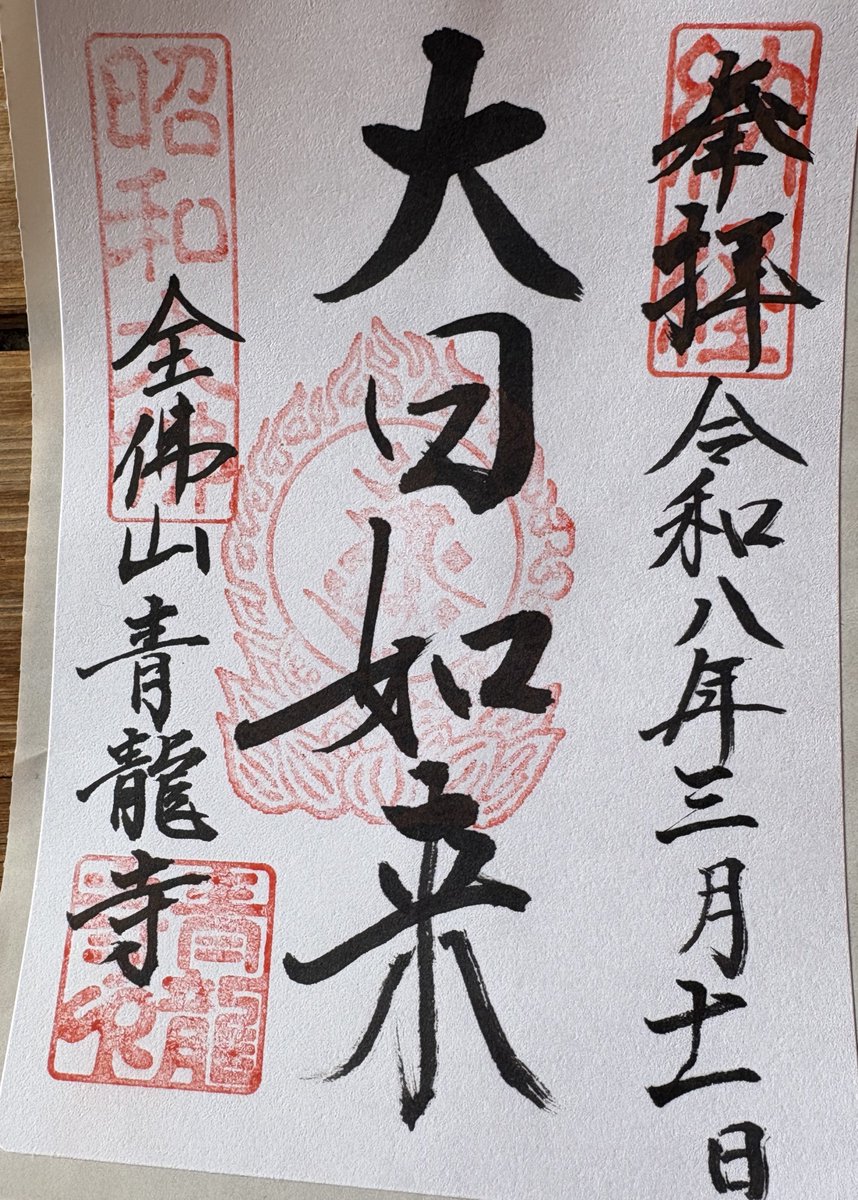 奉拝 令和八年三月十一日
納経
大日如来
全佛山青龍寺
昭和大佛
青龍寺印